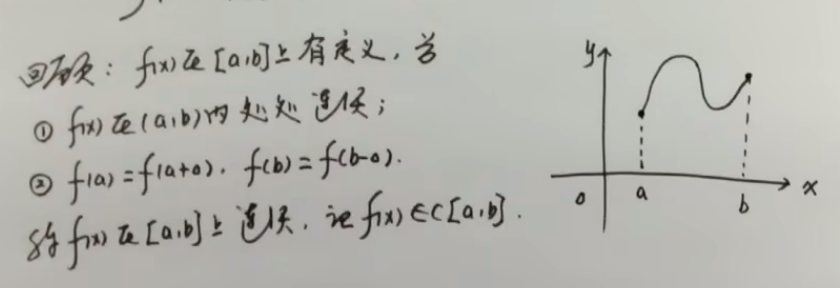 回顾：f(x)在[a,b]上有定义，若
① f(x)在(a,b)内处处连续；
② f(a)=f(a+0)，f(b)=f(b-0).
称f(x)在[a,b]上连续，记f(x)∈C[a,b].
y
0
a
b
x